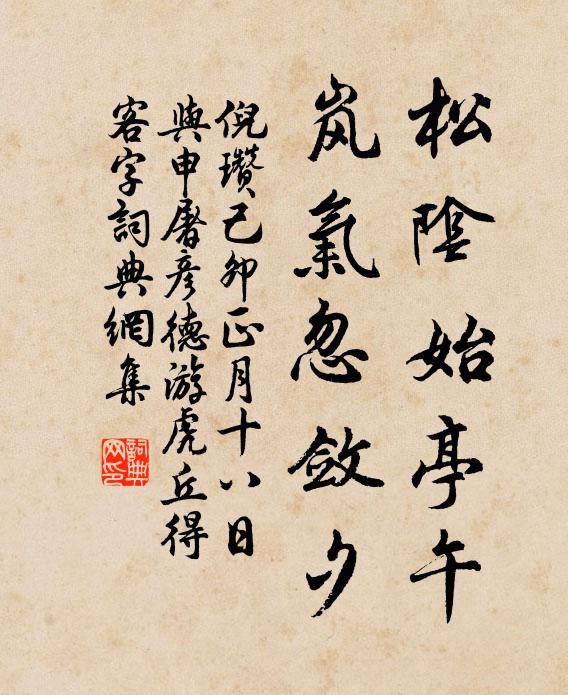 松陰始亭午
岚氣忽斂夕
倪瓚己卯正月十八日
與申屠彦德游虎丘得
客字詞典網集
詞典
网印